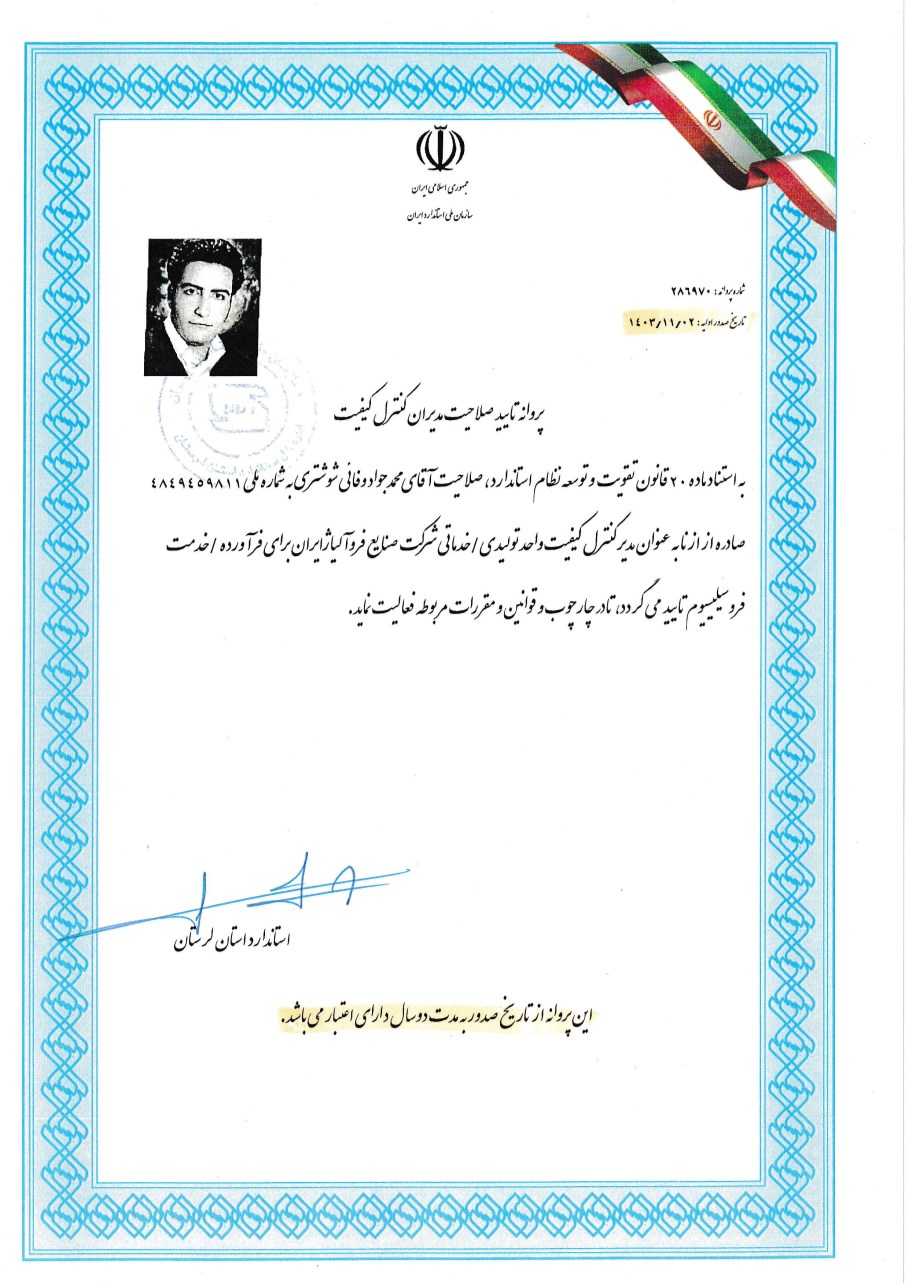 جمهوری اسلامی ایران
سازمان ملی استاندارد ایران
شماره پروانه: ۲۸۶۹۷۰
تاریخ صدور اولیه: ۱۴۰۳/۱۱/۰۲
پروانه تایید صلاحیت مدیران کنترل کیفیت
به استناد ماده ۲۰ قانون تقویت و توسعه نظام استاندارد، صلاحیت آقای محمدجواد وفائی شوشتری به شماره ملی ۴۸۴۹۴۵۹۸۱۱
صادره از ازنا به عنوان مدیر کنترل کیفیت واحد تولیدی / خدماتی شرکت صنایع فروآلیاژ ایران برای فرآورده / خدمت
فروسیلیسیوم تایید می گردد، تا در چارچوب و قوانین و مقررات مربوطه فعالیت نماید.
استاندارد استان لرستان
این پروانه از تاریخ صدور به مدت دو سال دارای اعتبار می باشد.